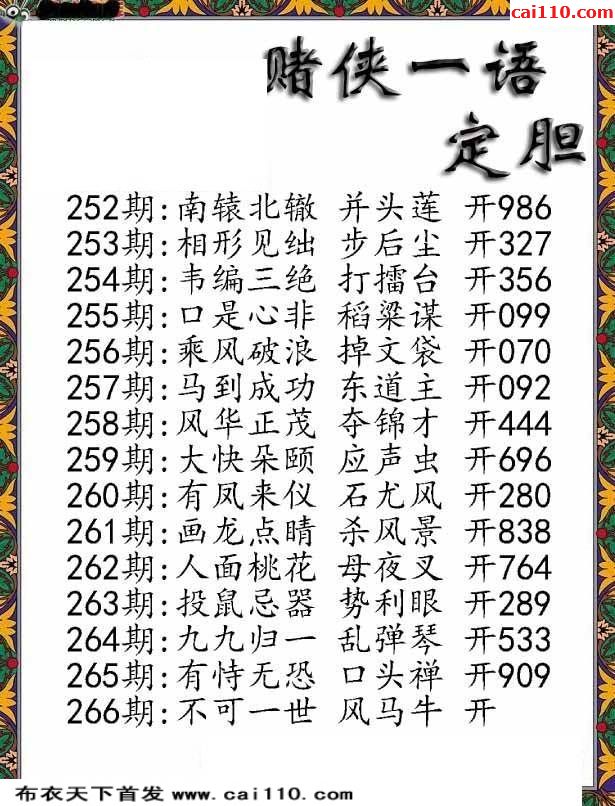 cai110.com
赌侠一语
定胆
252期:南辕北辙 并头莲 开986
253期:相形见绌 步后尘 开327
254期:韦编三绝 打擂台 开356
255期:口是心非 稻粱谋 开099
256期:乘风破浪 掉文袋 开070
257期:马到成功 东道主 开092
258期:风华正茂 夺锦才 开444
259期:大快朵颐 应声虫 开696
260期:有凤来仪 石尤风 开280
261期:画龙点睛 杀风景 开838
262期:人面桃花 母夜叉 开764
263期:投鼠忌器 势利眼 开289
264期:九九归一 乱弹琴 开533
265期:有恃无恐 口头禅 开909
266期:不可一世 风马牛 开
布衣天下首发 www.cai110.com